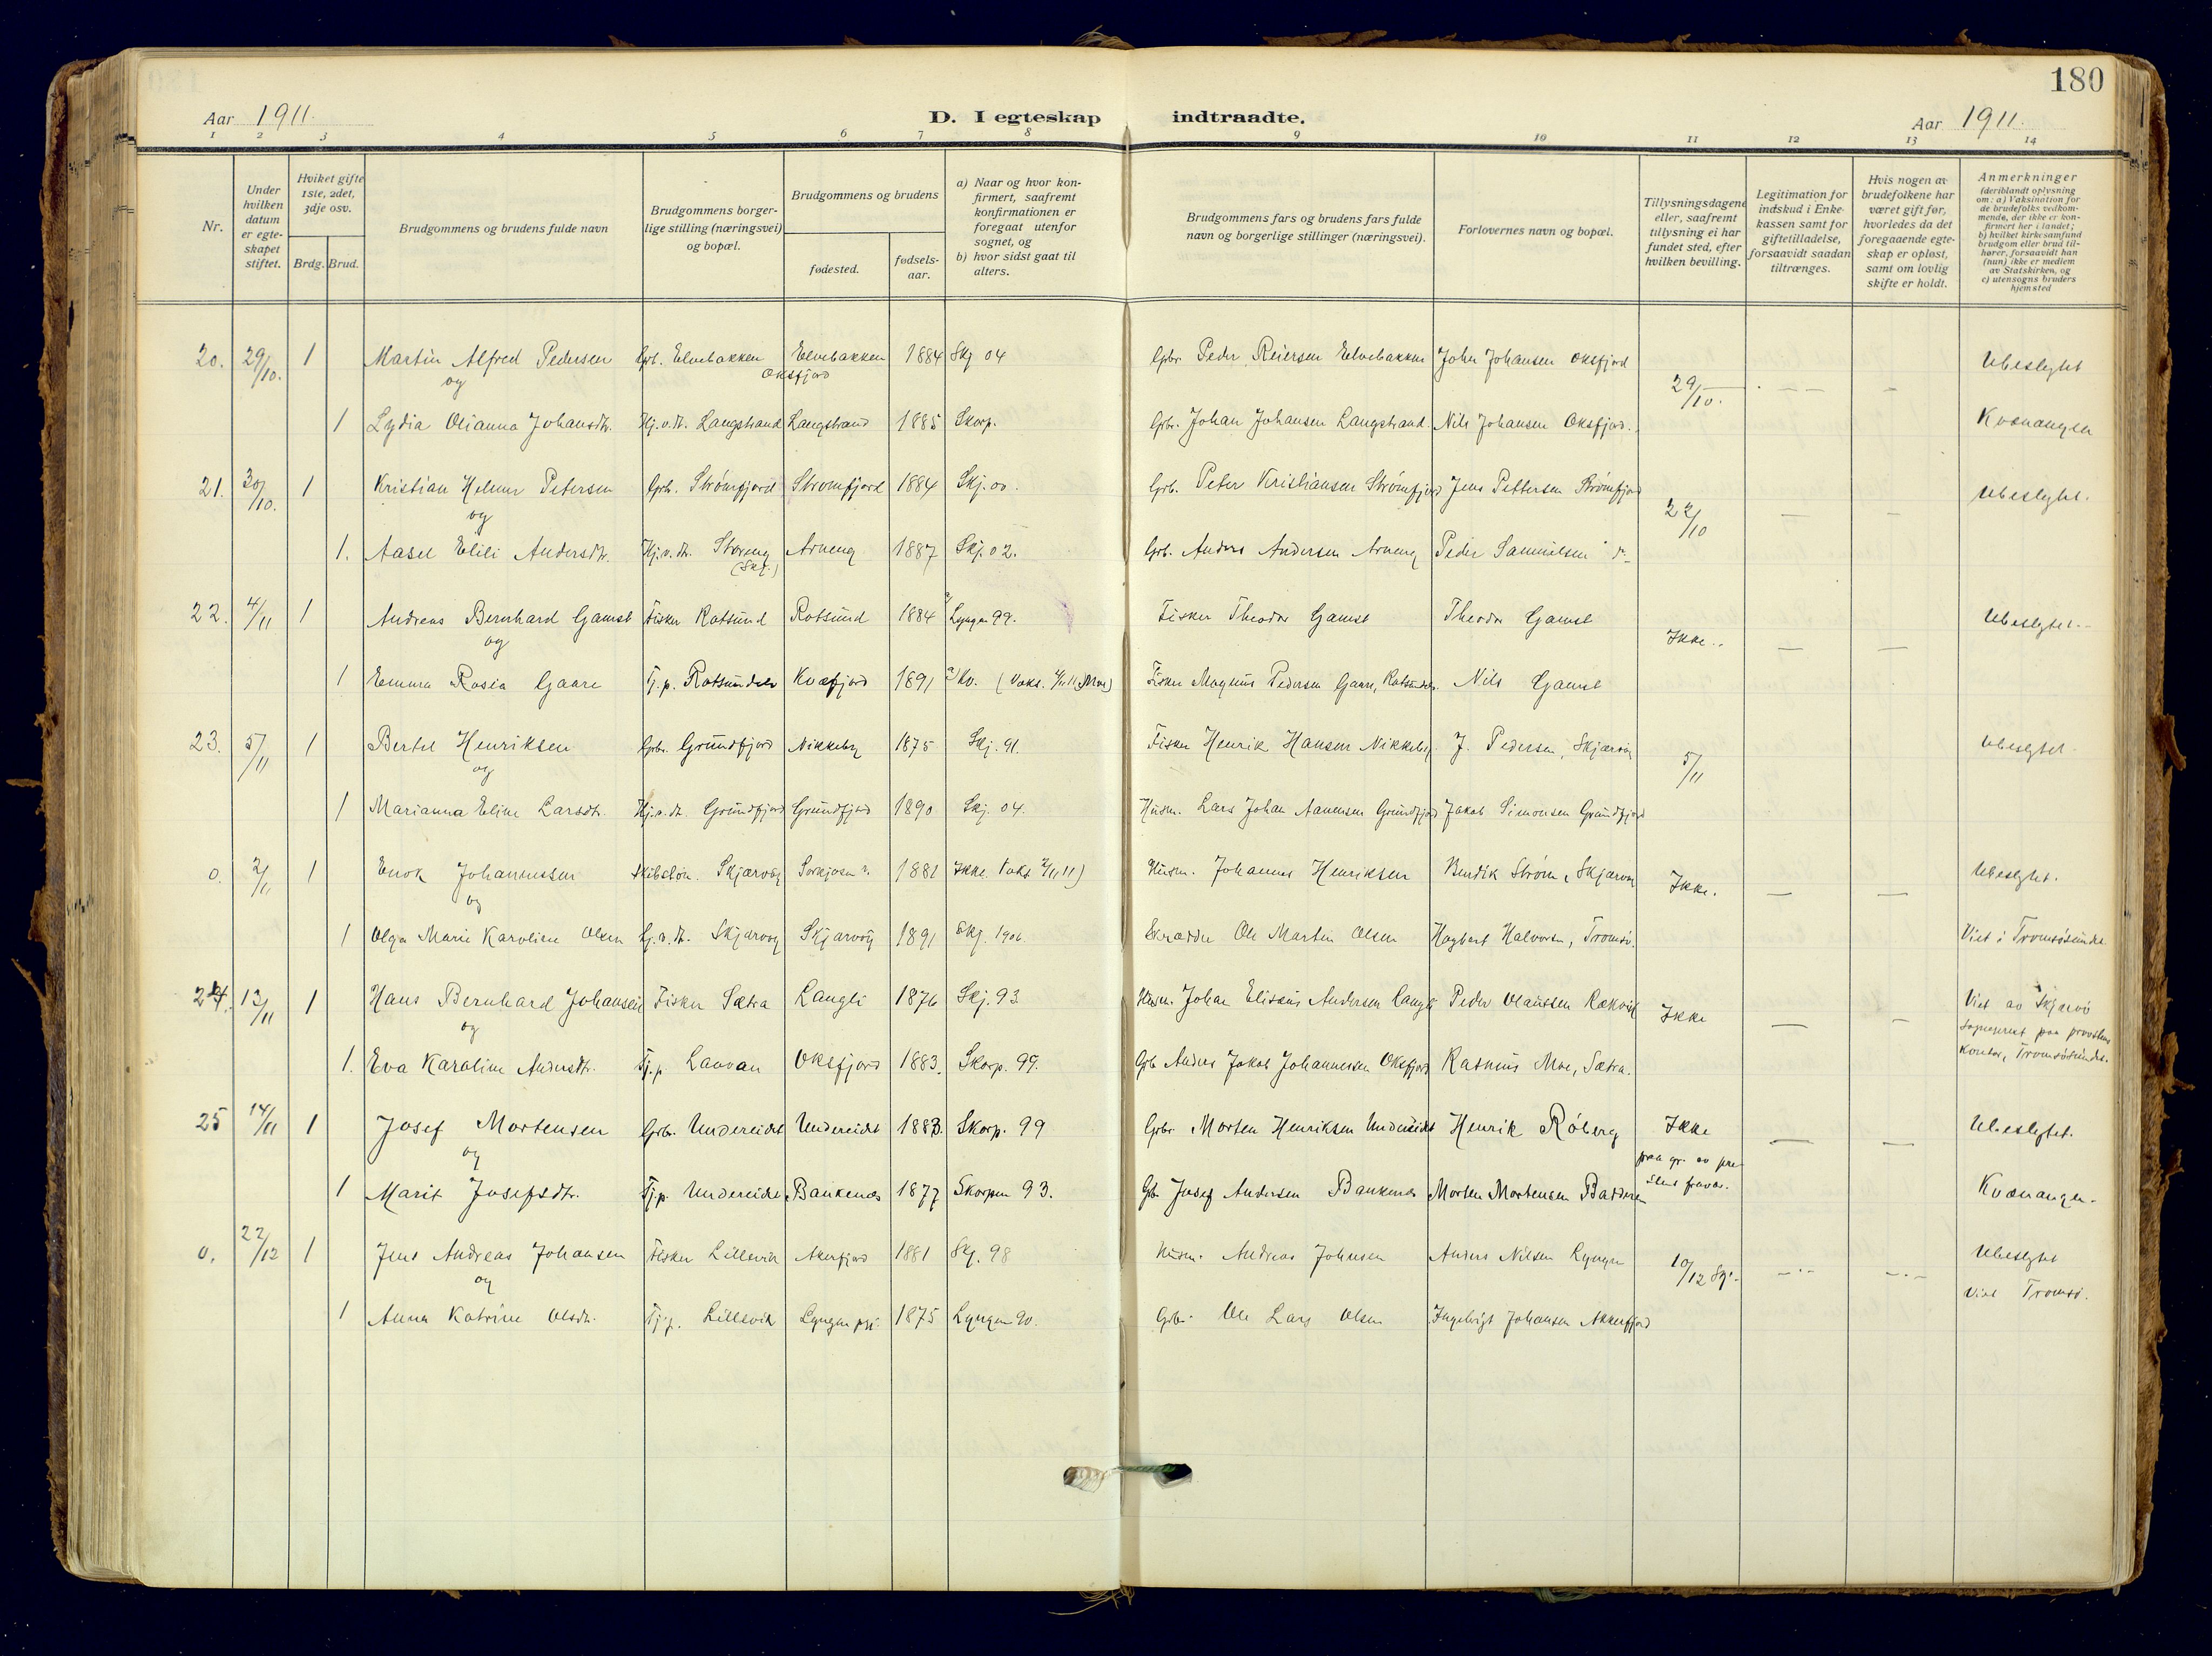 180
Aar 1911.
D. I egteskap indtraadte.
Aar 1911.
1 2 3 4 5 6 7 8 9 10 11 12 13 14
Nr.
Under hvilken datum er egteskapet stiftet.
Hvilket gifte 1ste, 2det, 3dje osv.
Brdg. Brud.
Brudgommens og brudens fulde navn
Brudgommens borgerlige stilling (næringsvei) og bopæl.
Brudgommens og brudens
fødested.
fødselsaar.
a) Naar og hvor konfirmert, saafremt konfirmationen er foregaat utenfor sognet, og
b) hvor sidst gaat til alters.
Brudgommens fars og brudens fars fulde navn og borgerlige stillinger (næringsvei).
Forlovernes navn og bopæl.
Tillysningsdagene eller, saafremt tillysning ei har fundet sted, efter hvilken bevilling.
Legitimation for indskud i Enkekassen samt for giftetilladelse, forsaavidt saadan tiltrænges.
Hvis nogen av brudefolkene har været gift før, hvorledes da det foregaaende egteskap er opløst, samt om lovlig skifte er holdt.
Anmerkninger (deriblandt oplysning om: a) Vaksination for de brudefolks vedkommende, der ikke er konfirmert her i landet; b) hvilket kirkesamfund brudgom eller brud tilhører, forsaavidt han (hun) ikke er medlem av Statskirken, og c) utensogns bruders hjemsted
20. 29/10. 1 Martin Alfred Pedersen Grb. Elvebakken Elvebakken Oksfjord 1884 Skj 04 Grbr Peder Reiersen Elvebakken John Johansen Oksfjord 29/10. — — Ubeslegtet
og
1 Lydia Olianna Johansdtr. Hj.v.dt. Langstrand Langstrand 1885 Skorp. Grbr. Johan Johansen Langstrand. Nils Johansen Oksfjord. Kvænangen
21. 30/10. 1 Kristian Helmer Petersen Grb. Strømfjord Strømfjord 1884 Skj. 00. Grb. Peter Kristiansen Strømfjord Jens Pettersen Strømfjord 22/10 — — Ubeslegtet.
og
1. Aasel Elili Andersdtr. Hj.v.dt. Storeng (Skj.) Arneng 1887 Skj. 02. Grb. Anders Andersen Arneng Peder Samuelsen do
22. 4/11 1 Andreas Bernhard Gamst Fisker Rotsund Rotsund 1884 Lyngen 99. Fisker Theodor Gamst Theodor Gamst Ikke.. — — Ubeslegtet.
og
1 Emma Rosia Gaare Tj.p. Rotsundelv Kvæfjord 1891 Kv. (Vaks. 4/11 11 Moe) Fisker Magnus Pedersen Gaare, Rotsundelv. Nils Gamst
23. 5/11 1 Bertel Henriksen Grbr. Grundfjord Nikkeby 1875 Skj. 91. Fisker Henrik Hansen Nikkeby J. Pedersen, Skjærvøy 5/11 Ubeslegtet
og
1 Marianna Eline Larsdtr. Hj.v.dt. Grundfjord Grundfjord 1890 Skj. 04. Husm. Lars Johan Aanensen Grundfjord Jakob Simonsen Grundfjord
0. 2/11 1 Enok Johannessen Skibstøm. Skjærvøy 1881 Ikke. Vaks. 2/11 11) Husm. Johannes Henriksen Bendik Strøm, Skjærvøy Ikke. — — Ubeslegtet.
og
1 Olga Marie Karoline Olsen Hj.v.dt. Skjærvøy Skjærvøy 1891 Skj. 1906 Skrædder Ole Martin Olsen Hagbart Halvorsen, Tromsø. Viet i Tromsøsundet
24. 13/11 1 Hans Bernhard Johansen Fisker Sætra Langli 1876 Skj. 93 Husm. Johan Elisæus Andersen Langli Peder Olaussen Rakvik Ikke — — Viet av Skjærvø sogneprest paa provstens kontor, Tromsøsundet.
og
1. Eva Karoline Andersdtr. Tj.p. Lauvan Oksfjord 1883. Skorp. 99. Grb Anders Jakob Johannessen Oksfjord Rasmus Moe, Sætra.
25 14/11 1 Josef Mortensen Grbr. Undereidet Undereidet 1883. Skorp. 99 Grbr Morten Henriksen Undereidet Henrik Røberg Ikke paa gr. av prestens fravær. — — Ubeslegtet.
og
1 Marit Josefsdtr. Tj.p. Undereidet Bankenes 1877 Skorpen 93. Gb. Josef Andersen Bankenes Morten Mortensen Badderen Kvænangen.
0. 22/12 1 Jens Andreas Johansen Fisker Lillevik Akerfjord 1881 Skj. 98 Husm. Andreas Johnsen Anders Nilsen Lyngen 10/12 Skj. — — Ubeslegtet
og
1 Anna Katrine Olsdtr. Tj.p. Lillevik Lyngen pgj. 1875 Lyngen 90. Grbr. Ole Lars Olsen Ingebrigt Johansen Akkerfjord viet Tromsø.